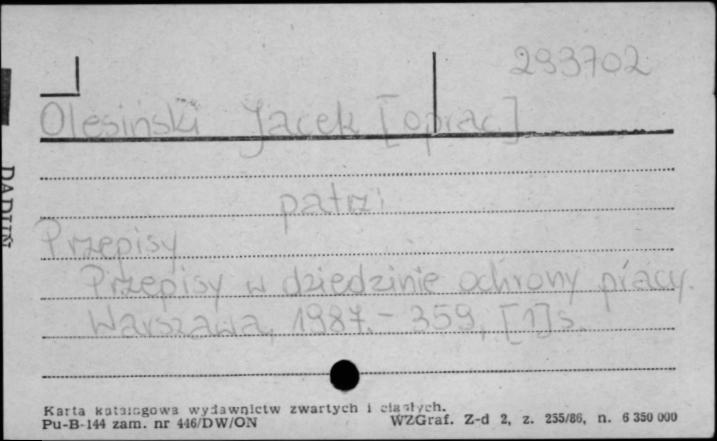 293702
Olesiński Jacek [oprac]
patrz:
Przepisy
Przepisy w dziedzinie ochrony pracy.
Warszawa, 1987. - 359, [1] s.
Karta katalogowa wydawnictw zwartych i ciągłych.
Pu-B-144 zam. nr 446/DW/ON WZGraf. Z-d 2, z. 255/86, n. 6 350 000